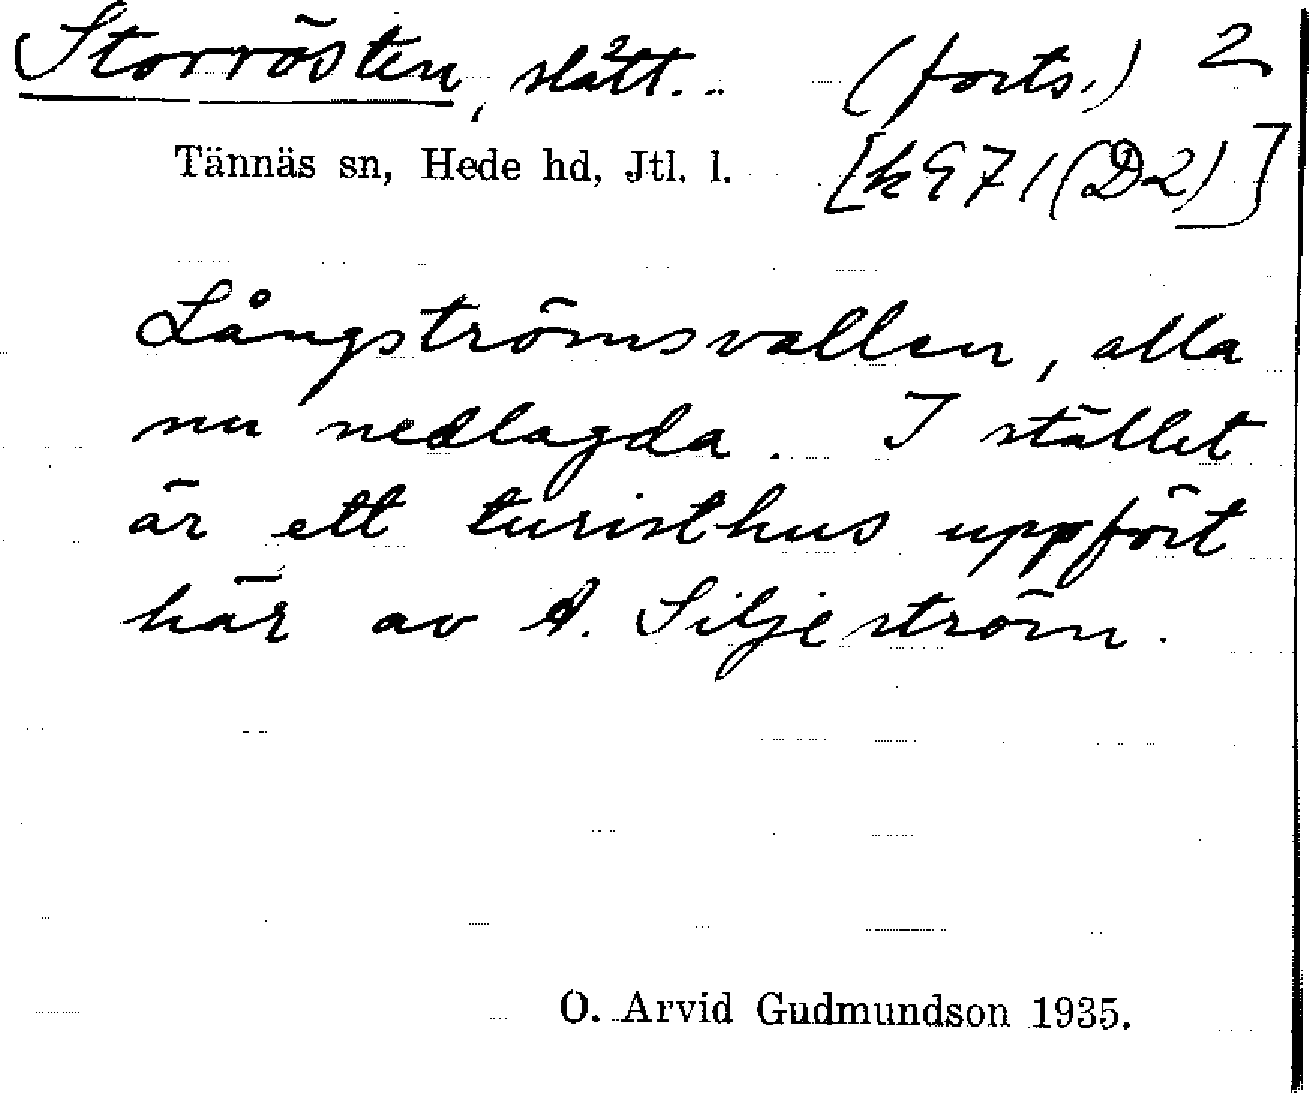 Storrösten, slått. (forts.) 2
Tännäs sn, Hede hd, Jtl. l. [k971(D2)]
Långströmsvallen, alla
nu nedlagda. I stället
är ett turisthus uppfört
här av A. Siljeström.
O. Arvid Gudmundson 1935.